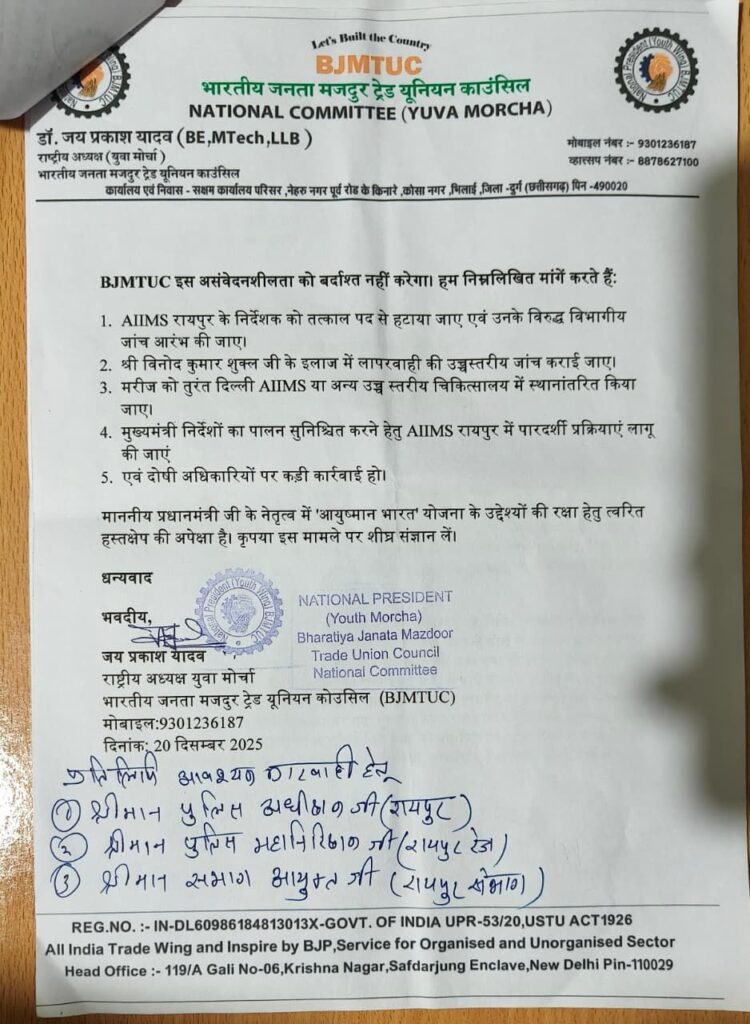 Let's Built the Country
BJMTUC
भारतीय जनता मजदुर ट्रेड यूनियन काउंसिल
NATIONAL COMMITTEE (YUVA MORCHA)
डॉ. जय प्रकाश यादव (BE,MTech,LLB )
राष्ट्रीय अध्यक्ष (युवा मोर्चा )
भारतीय जनता मजदुर ट्रेड यूनियन काउंसिल
मोबाइल नंबर :- 9301236187
व्हात्सप नंबर :- 8878627100
कार्यालय एवं निवास - सक्षम कार्यालय परिसर ,नेहरु नगर पूर्व रोड के किनारे ,कोसा नगर ,भिलाई ,जिला -दुर्ग (छत्तीसगढ़) पिन -490020
BJMTUC इस असंवेदनशीलता को बर्दाश्त नहीं करेगा। हम निम्नलिखित मांगें करते हैं:
1. AIIMS रायपुर के निर्देशक को तत्काल पद से हटाया जाए एवं उनके विरुद्ध विभागीय
जांच आरंभ की जाए।
2. श्री विनोद कुमार शुक्ल जी के इलाज में लापरवाही की उच्चस्तरीय जांच कराई जाए।
3. मरीज को तुरंत दिल्ली AIIMS या अन्य उच्च स्तरीय चिकित्सालय में स्थानांतरित किया
जाए।
4. मुख्यमंत्री निर्देशों का पालन सुनिश्चित करने हेतु AIIMS रायपुर में पारदर्शी प्रक्रियाएं लागू
की जाएं
5. एवं दोषी अधिकारियों पर कड़ी कार्रवाई हो।
माननीय प्रधानमंत्री जी के नेतृत्व में 'आयुष्मान भारत' योजना के उद्देश्यों की रक्षा हेतु त्वरित
हस्तक्षेप की अपेक्षा है। कृपया इस मामले पर शीघ्र संज्ञान लें।
धन्यवाद
भवदीय,
National President (Youth Wing) BJMTUC
NATIONAL PRESIDENT
(Youth Morcha)
Bharatiya Janata Mazdoor
Trade Union Council
National Committee
जय प्रकाश यादव
राष्ट्रीय अध्यक्ष युवा मोर्चा
भारतीय जनता मजदुर ट्रेड यूनियन कोउसिल (BJMTUC)
मोबाइल:9301236187
दिनांक: 20 दिसम्बर 2025
प्रतिलिपि आवश्यक कारवाही हेतू
① श्रीमान पुलिस अधीक्षक जी (रायपुर)
② श्रीमान पुलिस महानिरिक्षक जी (रायपुर रेंज)
③ श्रीमान संभाग आयुक्त जी (रायपुर संभाग)
REG.NO. :- IN-DL60986184813013X-GOVT. OF INDIA UPR-53/20,USTU ACT1926
All India Trade Wing and Inspire by BJP,Service for Organised and Unorganised Sector
Head Office :- 119/A Gali No-06,Krishna Nagar,Safdarjung Enclave,New Delhi Pin-110029